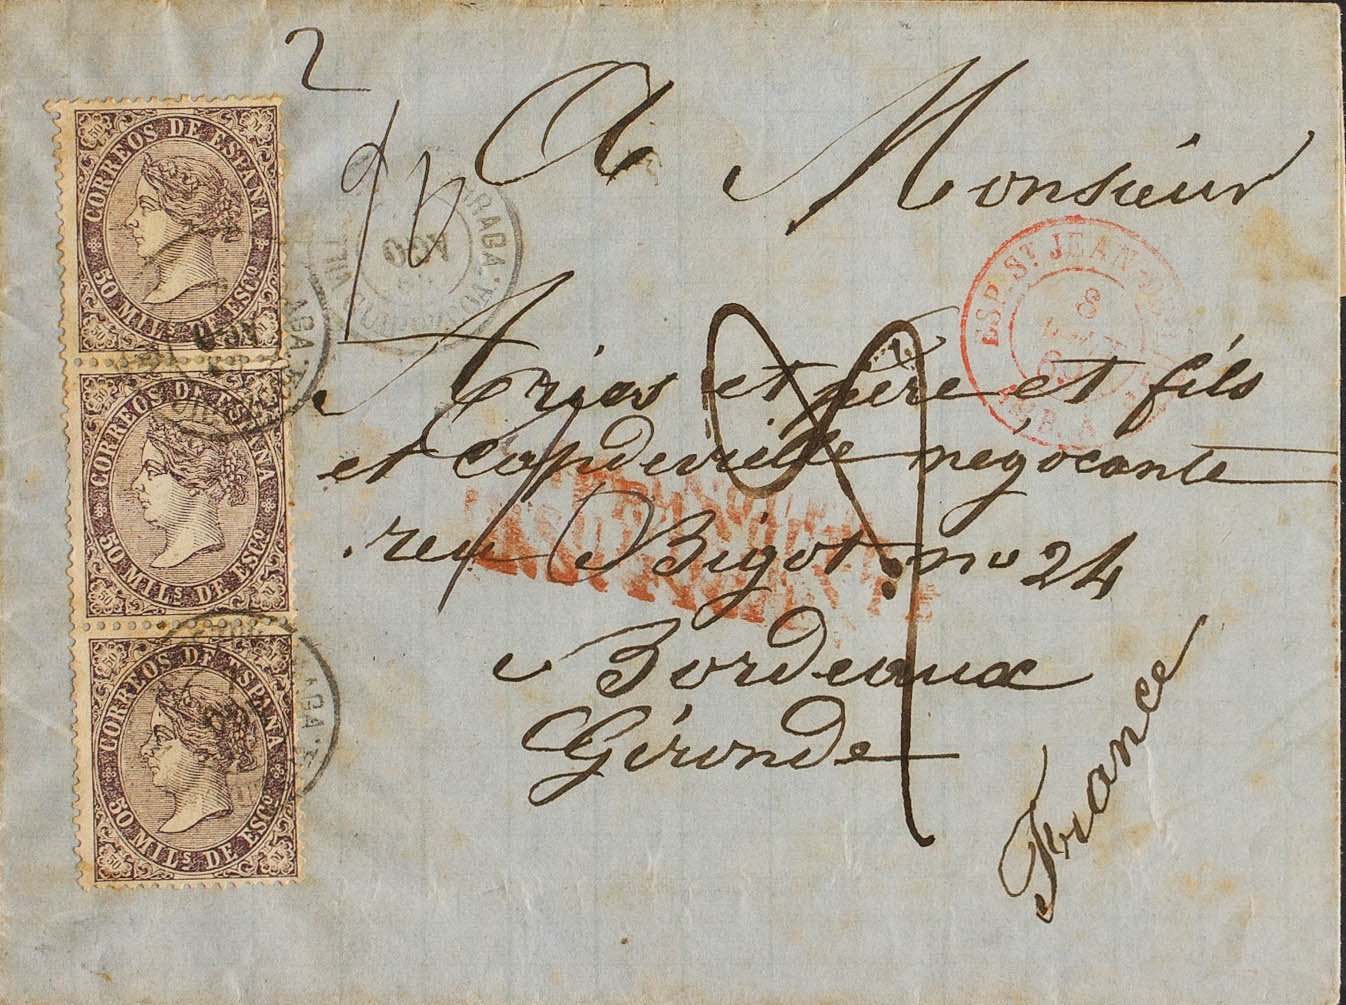 2
A Monsieur
Arias et père et fils
et Capdeville negocante
reu Bigot nº 24
Bordeaux
Gironde
France
CORREOS DE ESPAÑA
50 MILS DE ESCO
CORREOS DE ESPAÑA
50 MILS DE ESCO
CORREOS DE ESPAÑA
50 MILS DE ESCO
ESP. ST JEAN-DE-
8
AMB. A
AGO